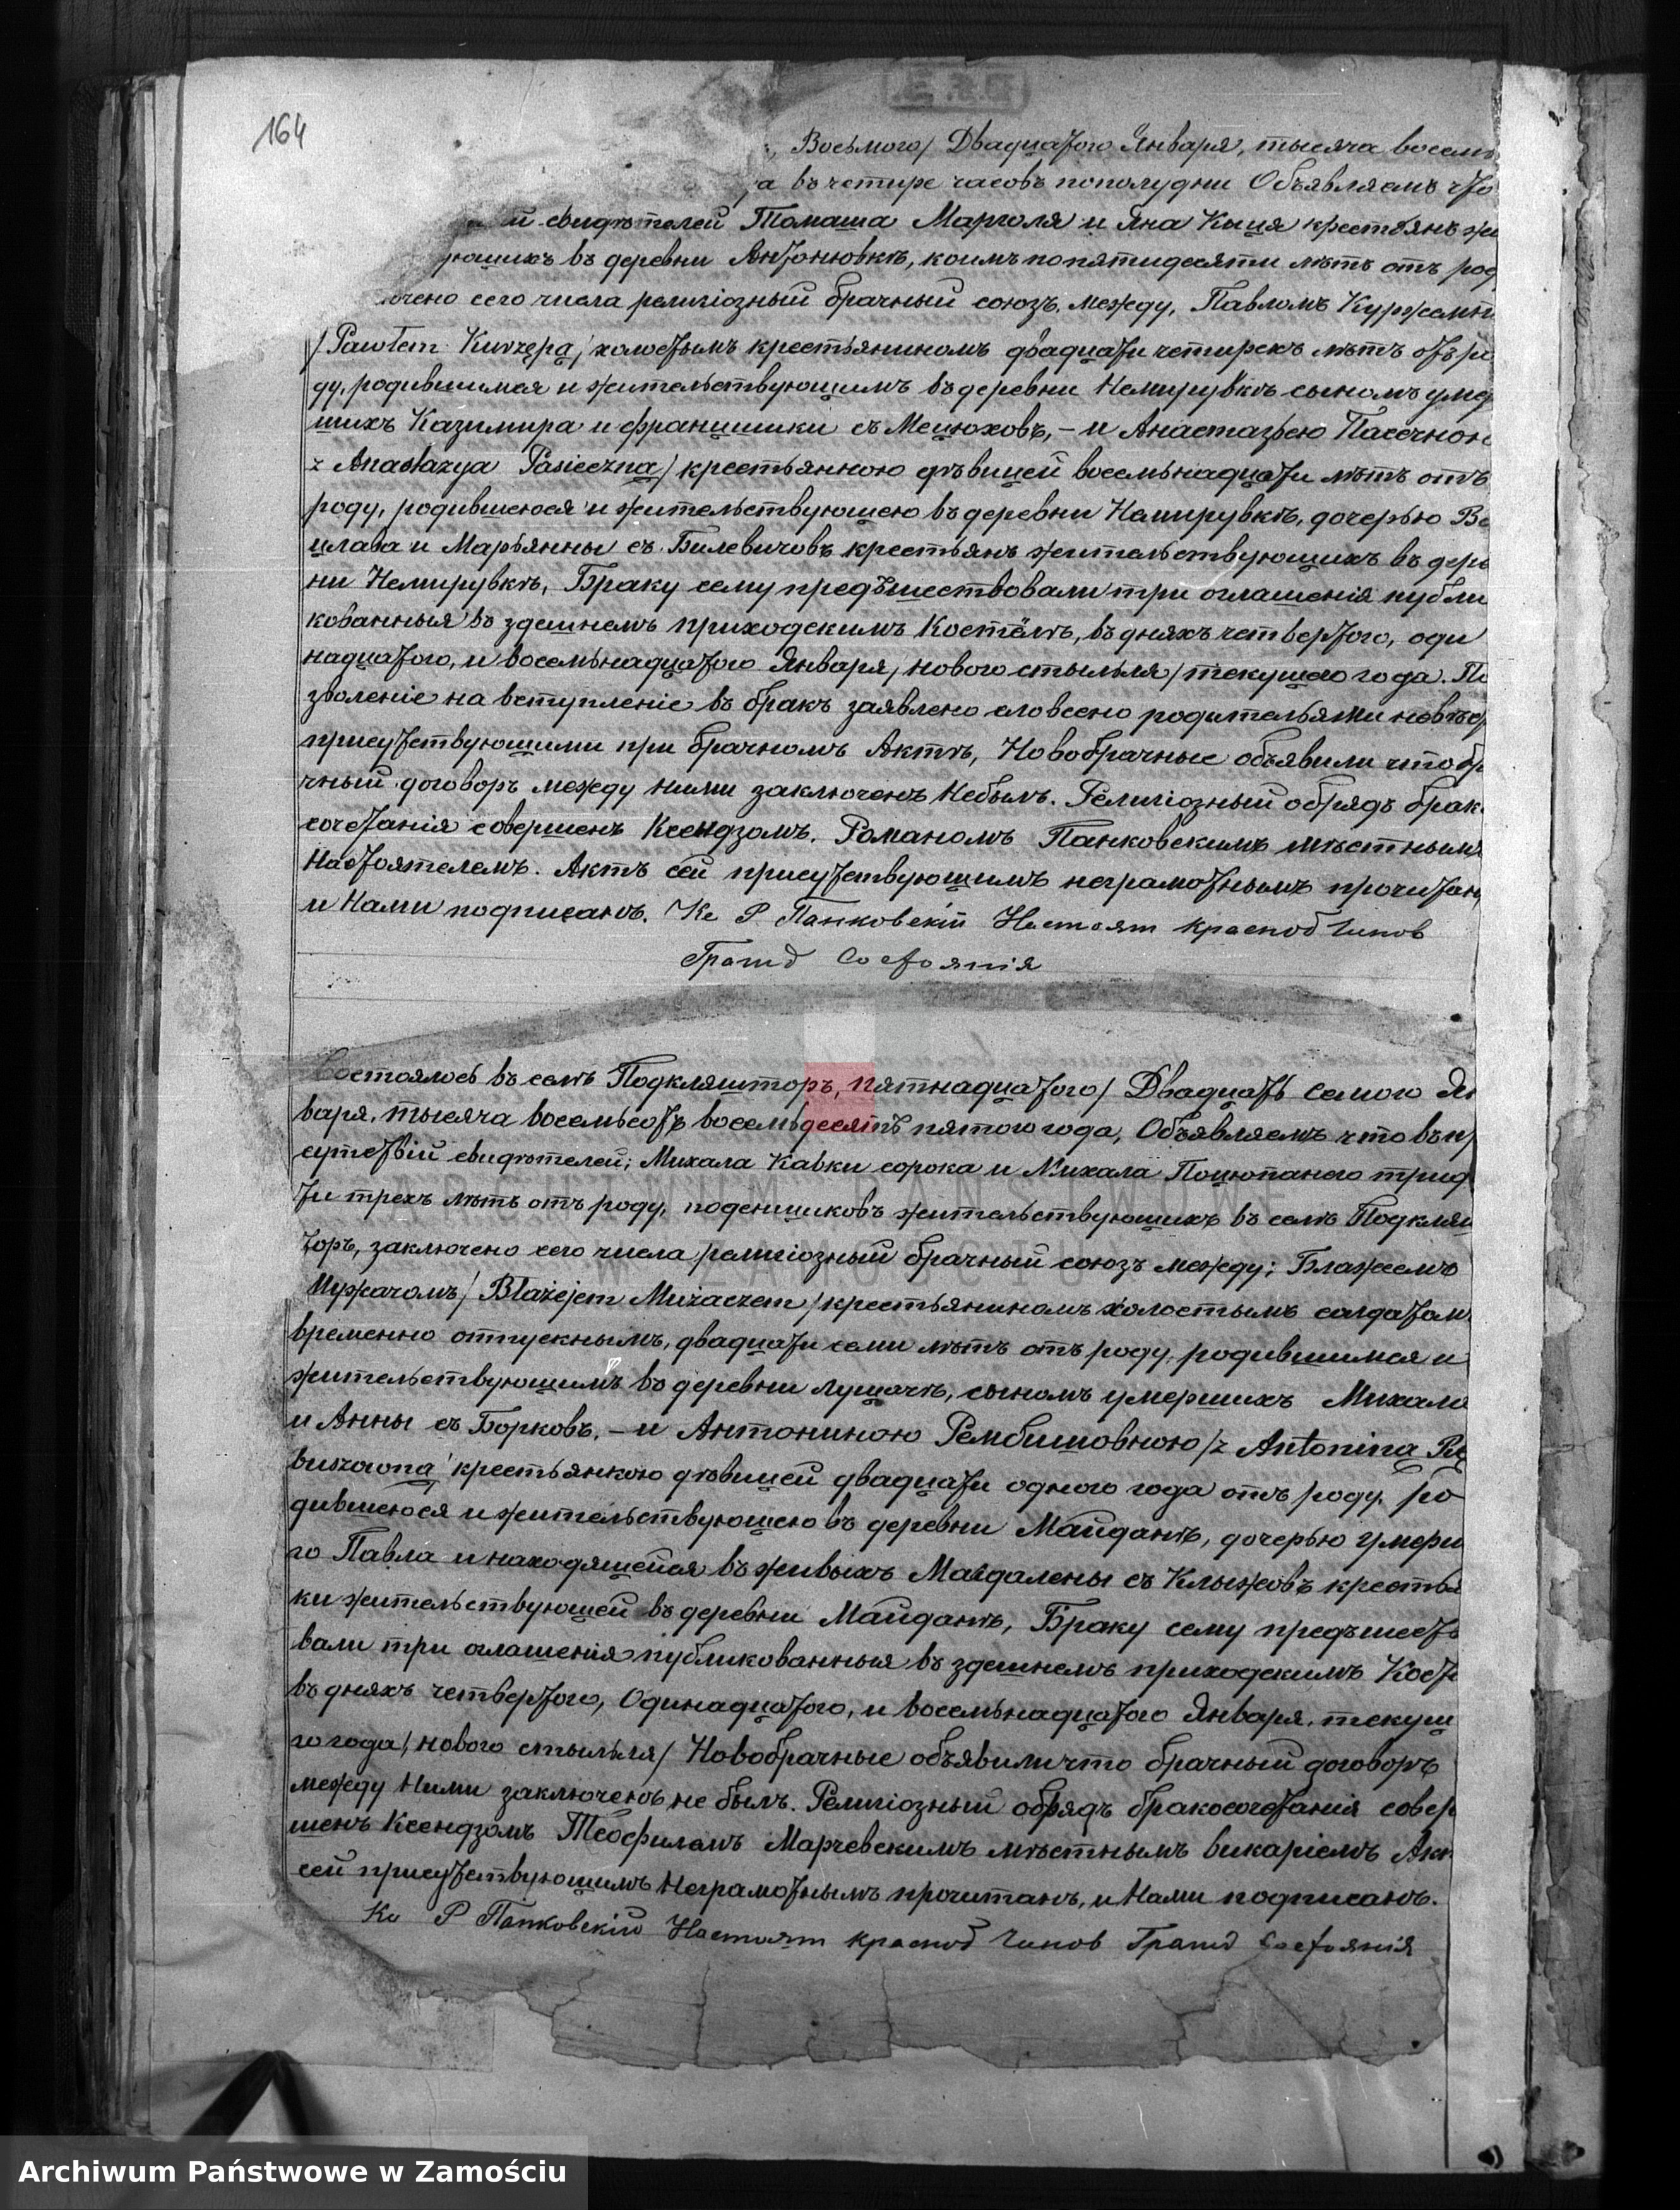 164
Восьмого / Двадцатого Января, тысяча восемь
въ четыре часовъ пополудни Объявляемъ что
й свидѣтелей Томаша Марголя и Яна Кыця крестьянъ жи
ющихъ въ деревни Антонювкѣ, коимъ по пятидесяти лѣтъ отъ род
ючено сего числа религіозный брачный союзъ, между, Павломъ Куржемп
/ Pawłem Kurzępą / холостымъ крестьяниномъ двадцати четирехъ лѣтъ отъ ро
ду, родившимся и жительствующимъ въ деревни Немирувкѣ сыномъ умер
шихъ Казимира и францишки съ Мецюховъ, – и Анастазіею Пасечною
z Anastazya Pasieczną / крестьянкою дѣвицей восемьнадцати лѣтъ отъ
роду, родившеюся и жительствующею въ деревни Немирувкѣ, дочерью Ве
цлава и Марьянны съ Билевичовъ крестьянъ жительствующихъ въ дерев
ни Немирувкѣ, Браку сему предъшествовали три оглашенія публи
кованныя въ здешнемъ приходскимъ Костёлѣ, въ дняхъ четвертого, оди
надцатого, и восемьнадцатого Января / нового стыльля / текущего года. По
зволеніе на вступленіе въ бракъ заявлено словесно родительями невѣс
присутствующими при брачномъ Актѣ, Новобрачные объявили что бр
чный договоръ между ними заключенъ небылъ. Религіозный обрядъ брак
сочетанія совершенъ Ксендзомъ. Романомъ Панковскимъ мѣстнымъ
Настоятелемъ. Актъ сей присутствующимъ неграмотнымъ прочитан
и Нами подписанъ. Кс Р Панковскій Настоят Красноб Чинов
Гражд Состоянія
Состоялось въ селѣ Подкляшторъ, пятнадцатого / Двадцать семого Ян
варя, тысяча восемьсотъ восемьдесятъ пятого года, Объявляемъ что въ пр
сутствіи свидѣтелей; Михала Кавки сорока и Михала Поцюпаного трид
ти трехъ лѣтъ отъ роду, поденщиковъ жительствующихъ въ селѣ Подкляш
торъ, заключено сего числа религіозный брачный союзъ между; Блажеемъ
Мужачомъ / Błażejem Mużaczem / крестьяниномъ холостымъ салдатом
временно отпускнымъ, двадцати семи лѣтъ отъ роду, родившимся и
жительствующимъ въ деревни Лущачѣ, сыномъ умершихъ Михала
и Анны съ Борковъ. – и Антониною Рембишовною / z Antonina Rę
buszowną / крестьянкою дѣвицей двадцати одного года отъ роду. ро
дившеюся и жительствующею въ деревни Майданѣ, дочерью умерш
го Павла и находящейся въ живыхъ Магдалены съ Клыжовъ крестья
ки жительствующей въ деревни Майданѣ, Браку сему предъшест
вали три оглашенія публикованныя въ здешнемъ приходскимъ Косте
въ дняхъ четвертого, Одинадцатого, и восемьнадцатого Января, текущ
го года / нового стыльля / Новобрачные объявили что брачный договоръ
между Ними заключенъ не былъ. Религіозный обрядъ бракосочетанія совер
шенъ Ксендзомъ Теофиломъ Марчевскимъ мѣстнымъ викаріемъ Акт
сей присутствующимъ Неграмотнымъ прочитанъ, и Нами подписанъ.
Кс Р Панковскій Настоят Красноб Чинов Гражд Состоянія
ARCHIWUM PAŃSTWOWE
W ZAMOŚCIU
Archiwum Państwowe w Zamościu